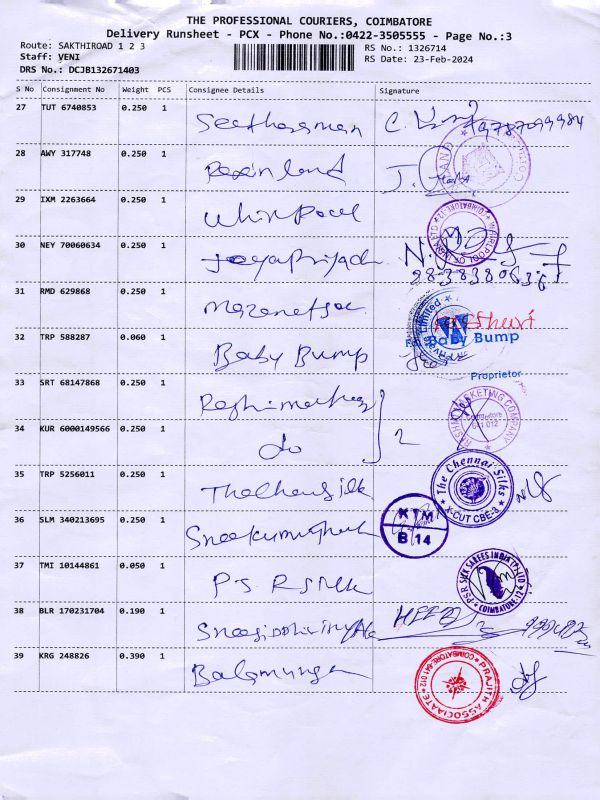 THE PROFESSIONAL COURIERS, COIMBATORE
Delivery Runsheet - PCX - Phone No.:0422-3505555 - Page No.:3
Route: SAKTHIROAD 1 2 3 RS No.: 1326714
Staff: VENI RS Date: 23-Feb-2024
DRS No.: DCJB132671403
S No Consignment No Weight PCS Consignee Details Signature
27 TUT 6740853 0.250 1 Seetharaman
28 AWY 317748 0.250 1
29 IXM 2263664 0.250 1 Whirlpool
WHIRLPOOL OF INDIA LTD COIMBATORE-12
30 NEY 70060634 0.250 1 Jeyapriyadh
31 RMD 629868 0.250 1
Limited
32 TRP 588287 0.060 1 Baby Bump For Baby Bump
Proprietor
33 SRT 68147868 0.250 1
RASHMI MARKETING COMPANY Coimbatore 641 012
34 KUR 6000149566 0.250 1 do 2
35 TRP 5256011 0.250 1 The Chennai Silk
The Chennai Silks X-CUT CBE-8
36 SLM 340213695 0.250 1
KTM B 14
37 TMI 10144861 0.050 1 P.S.R Silk
PSR SILK SAREES INDIA (P) LTD COIMBATORE-12
38 BLR 170231704 0.190 1
39 KRG 248826 0.390 1 Balamurugan
PRAJITH ASSOCIATE COIMBATORE-641 012